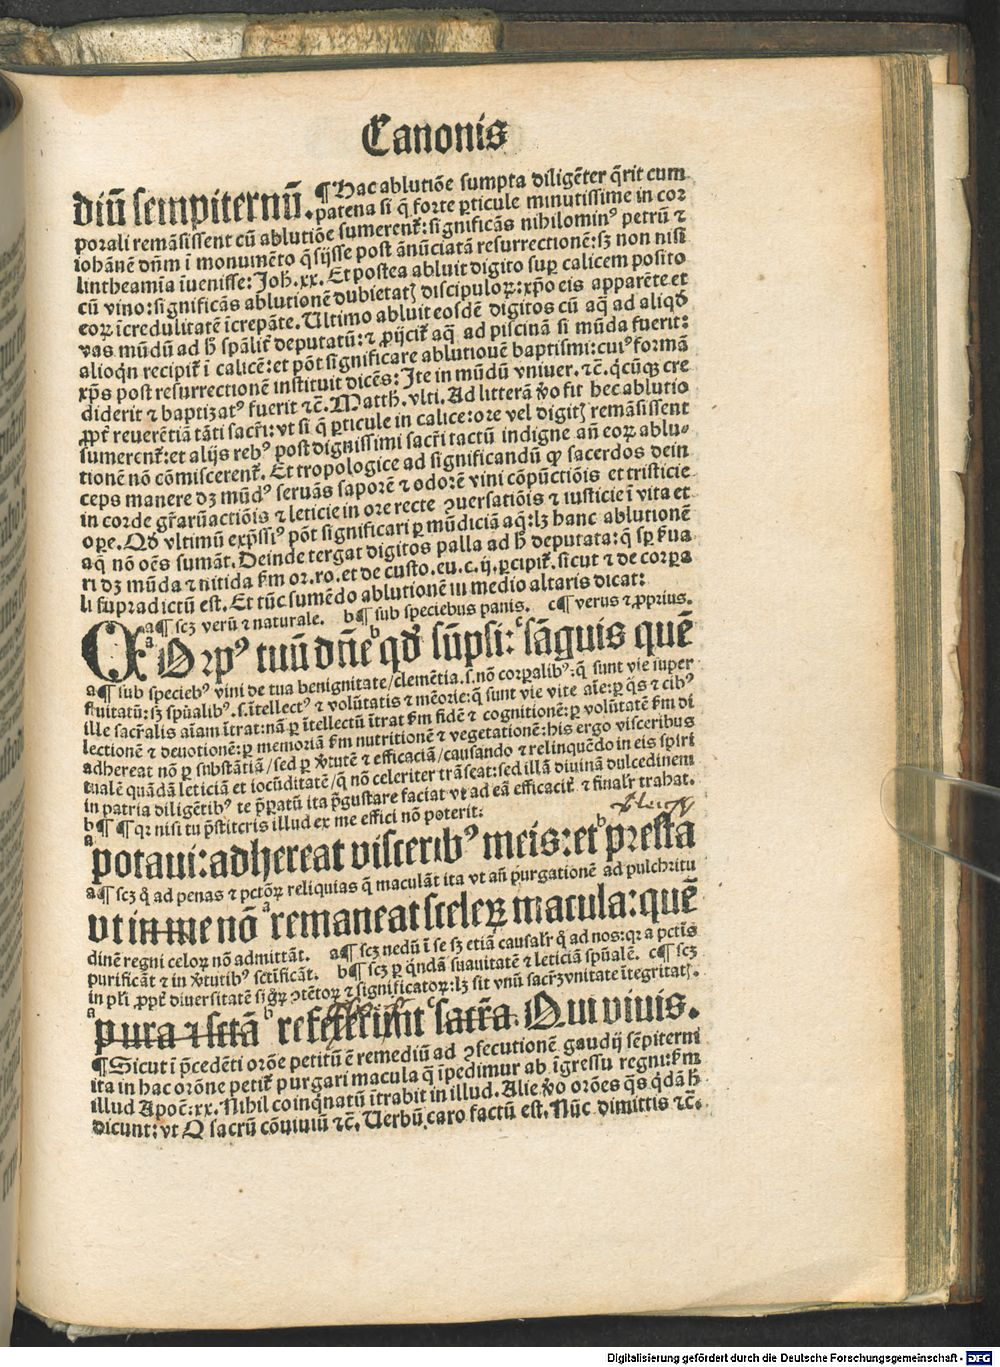 Canonis
diū sempiternū. ¶ Hac ablutiōe sumpta diligēter q̄rit cum
patena si q̄ forte ꝑticule minutissime in cor
porali remāsissent cū ablutiōe sumerenť: significās nihilominꝰ petrū ⁊
iohānē dn̄m ī monumēto q̄sijsse post ānūciatā resurrectionē: sꝫ non nisi
lintheamīa īuenisse: Joh̄. xx. Et postea abluit digito suꝑ calicem posito
cū vino: significās ablutionē dubietatꝭ discipuloꝝ: xp̄o eis apparēte et
eoꝝ īcredulitatē īcrepāte. Ultimo abluit eosdē digitos cū aq̄ ad aliqđ
vas mūdū ad h̄ sp̄aliť deputatū: ⁊ ꝓijciť aq̄ ad piscinā si mūda fuerit:
alioqn̄ recipiť ī calicē: et pōt significare ablutionē baptismi: cuiꝰ formā
xp̄s post resurrectionē instituit dicēs: Ite in mūdū vniuer. ⁊c̄. q̄cūqꝫ cre
diderit ⁊ baptizatꝰ fuerit ⁊c̄. Matth̄. vlti. Ad litterā v̄o fit hec ablutio
ꝓpť reuerētiā tāti sacr̄i: vt si q̄ ꝑticule in calice: ore vel digitꝭ remāsissent
sumerenť: et alijs rebꝰ post dignissimi sacr̄i tactū indigne añ eoꝝ ablu-
tionē nō cōmiscerenť. Et tropologice ad significandū ꝙ sacerdos dein
ceps manere dꝫ mūdꝰ seruās saporē ⁊ odorē vini cōpūctiōis et tristicie
in corde gr̄arūactiōis ⁊ leticie in ore recte ꝯuersatiōis ⁊ iusticie ī vita et
oꝑe. Qđ vltimū exp̄ssiꝰ pōt significari ꝑ mūdiciā aq̄: lꝫ hanc ablutionē
aq̄ nō oēs sumāt. Deinde tergat digitos palla ad h̄ deputata: q̄ sꝑ ẜua
ri dꝫ mūda ⁊ nitida ẜm or. ro. et de custo. eu. c. ij. ꝑcipiť. sicut ⁊ de corꝑa
li supradictū est. Et tūc sumēdo ablutionē in medio altaris dicat:
a¶ scꝫ verū ⁊ naturale. b¶ sub speciebus panis. c¶ verus ⁊ ꝓprius.
COrpꝰ tuū dn̄e qđ sūpsi: sāguis quē
a¶ sub speciebꝰ vini de tua benignitate/clemētia. s. nō corꝑalibꝰ: q̄ sunt vie super
fluitatū: sꝫ sp̄ualibꝰ. s. ītellectꝰ ⁊ volūtatis ⁊ mēorie: q̄ sunt vie vite aīe: ꝑ q̄s ⁊ cibꝰ
ille sacr̄alis aīam ītrat: nā ꝑ ītellectū ītrat ẜm fidē ⁊ cognitionē: ꝑ volūtatē ẜm di
lectionē ⁊ deuotionē: ꝑ memoriā ẜm nutritionē ⁊ vegetationē: his ergo visceribus
adhereat nō ꝑ substātiā/sed ꝑ v̄tutē ⁊ efficaciā/causando ⁊ relinquēdo in eis spiri
tualē quādā leticiā et iocūditatē/q̄ nō celeriter trāseat: sed illā diuinā dulcedinem
in patria diligētibꝰ te p̄ꝑatū ita p̄gustare faciat vt ad eā efficaciť ⁊ finalr̄ trahat.
b¶ ¶ qꝛ nisi tu p̄stiteris illud ex me effici nō poterit.
potaui: adhereat visceribꝰ meis: et presta
a¶ scꝫ q̄ ad penas ⁊ pctōꝝ reliquias q̄ maculāt ita vt añ purgationē ad pulchritu
vt in me nō remaneat sceleꝝ macula: quē
dinē regni celoꝝ nō admittāt. a¶ scꝫ nedū ī se sꝫ etiā causalr̄ q̄ ad nos: qꝛ a pctis
purificāt ⁊ in v̄tutibꝰ sctificāt. b¶ scꝫ ꝑ q̄ndā suauitatē ⁊ leticiā sp̄ualē. c¶ scꝫ
in pl̄i ꝓpť diuersitatē signoꝝ ꝯtētoꝝ ⁊ significatoꝝ: lꝫ sit vnū sacr̄ꝫ vnitate ītegritatꝭ.
pura ⁊ sctā refecerūt sacr̄a. Qui viuis.
¶ Sicut ī p̄cedēti orōe petitū ē remediū ad ꝯsecutionē gaudij sēpiterni
ita in hac orōne petiť purgari macula q̄ īpedimur ab īgressu regni: ẜm
illud Apoc̄. xx. Nihil coinq̄natū ītrabit in illud. Alie v̄o orōes q̄s q̄dā h̄
dicunt: vt O sacrū cōuiuiū ⁊c̄. Uerbū caro factū est. Nūc dimittis ⁊c̄.
Digitalisierung gefördert durch die Deutsche Forschungsgemeinschaft - DFG